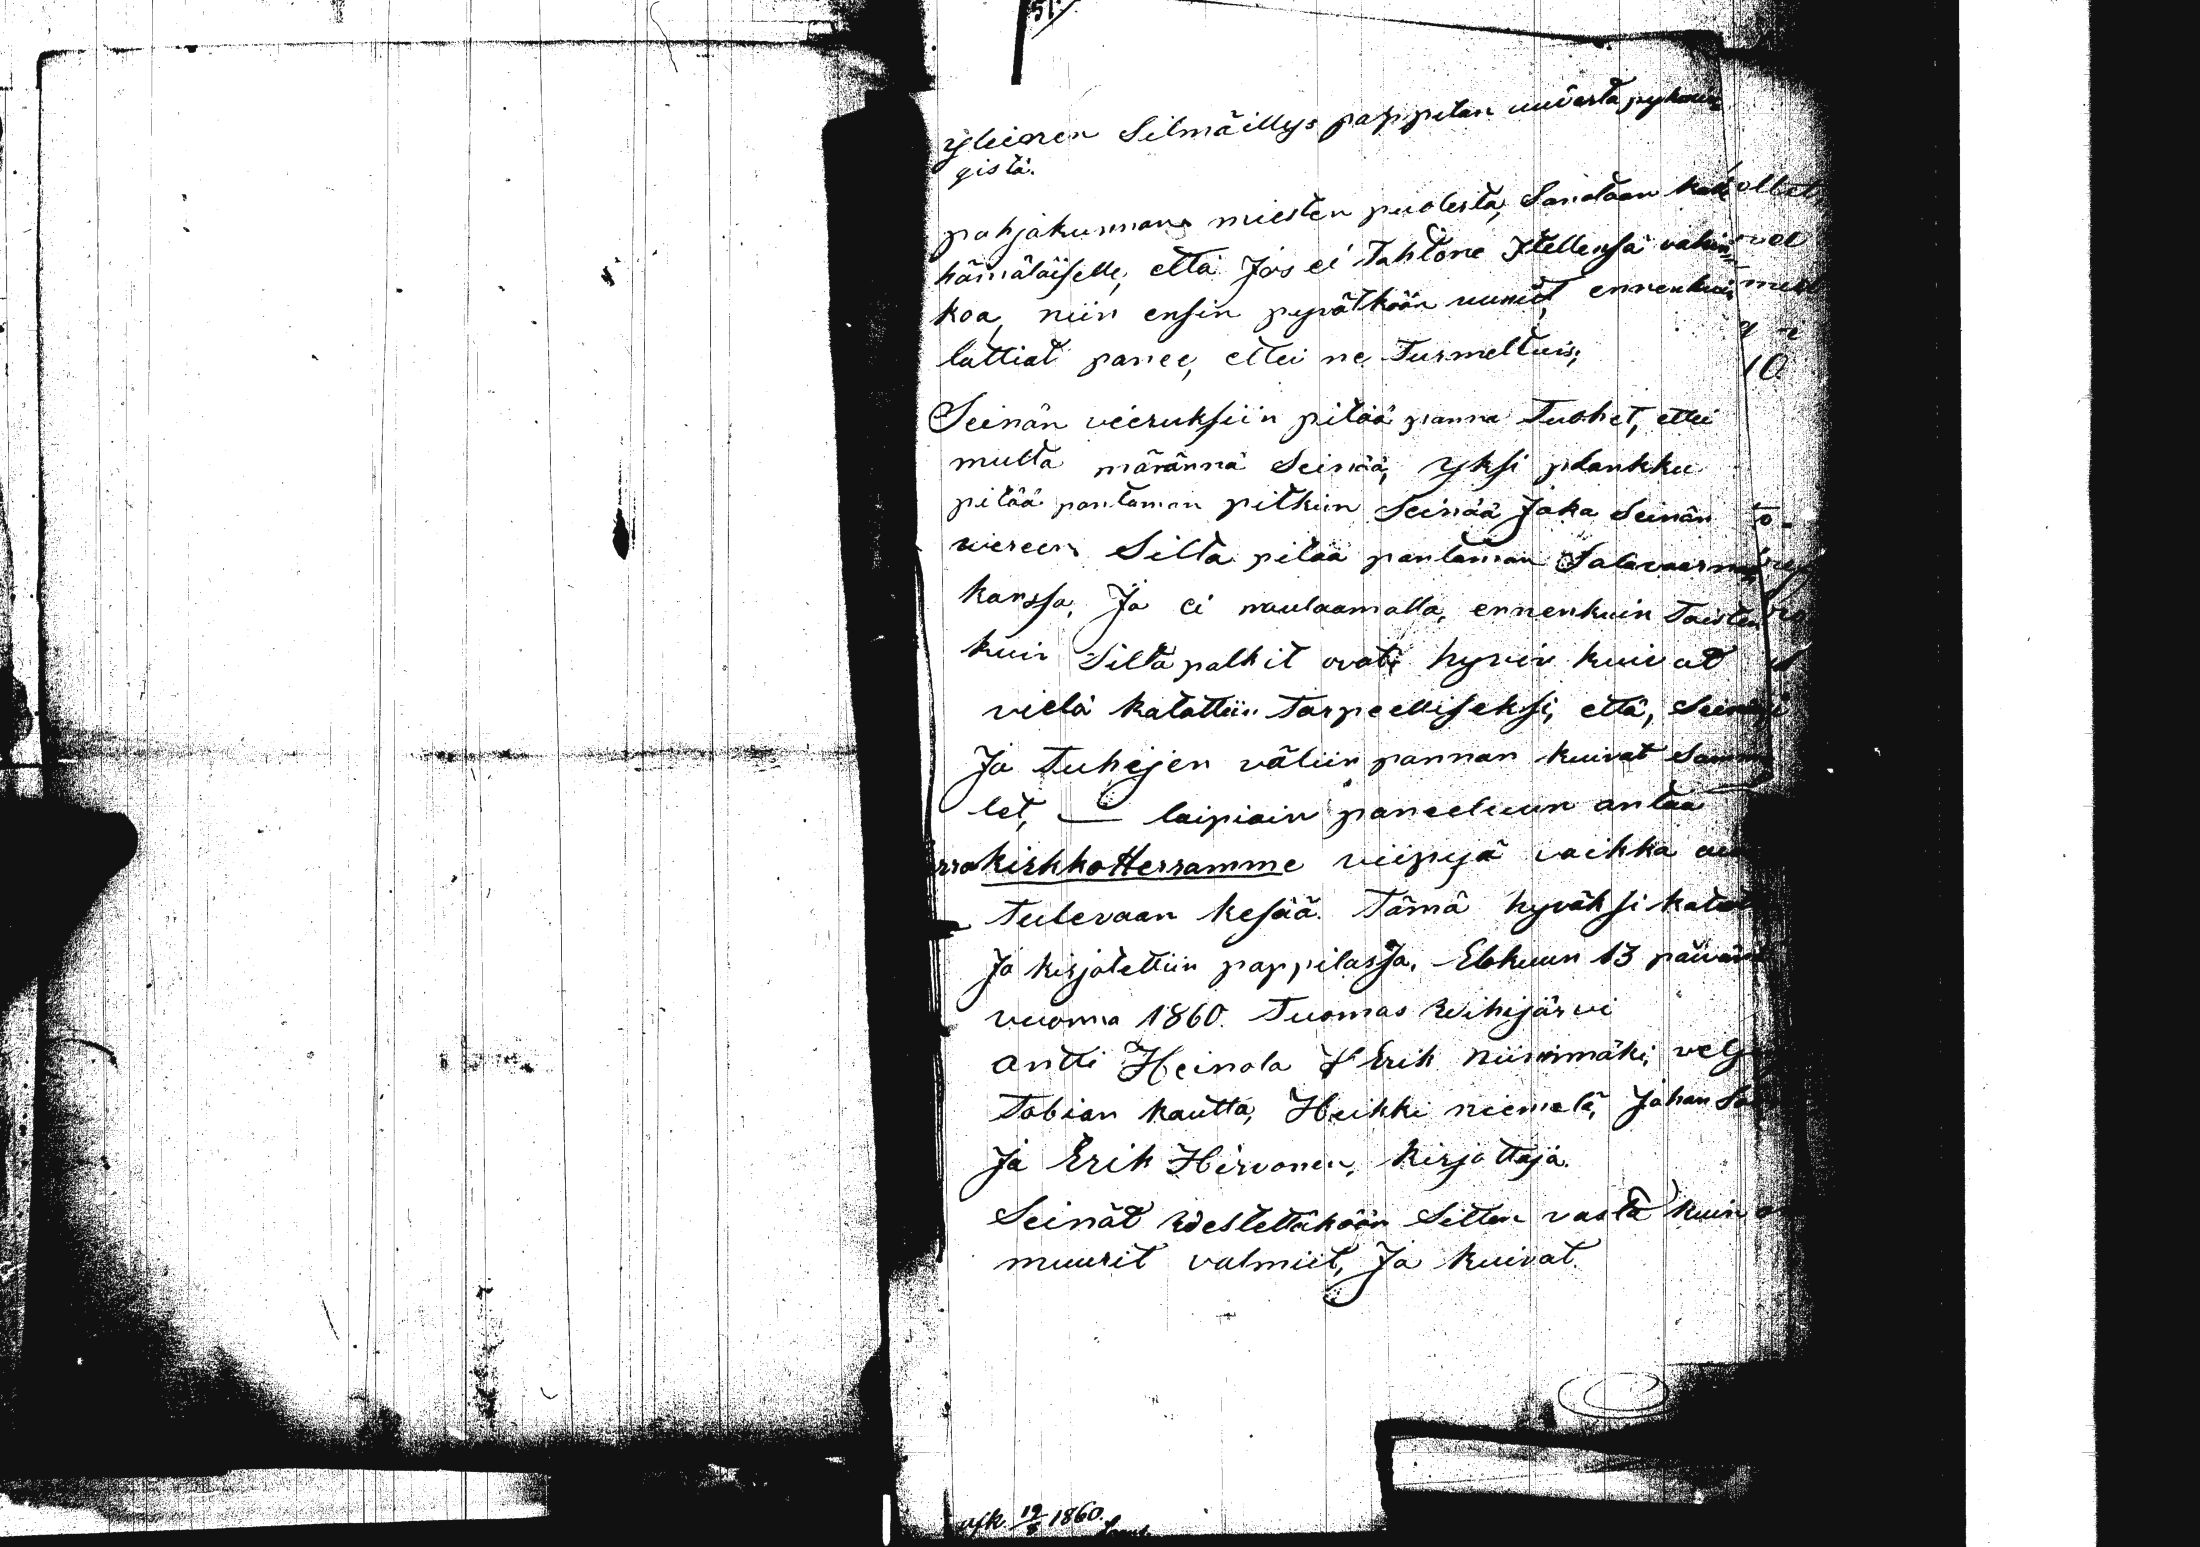 51.
yleinen Silmäillys pappilan uuvesta pyknin
gistä.
pohjakunnans miesten puolesta, Sanotaan
hämäläiselle, että Jos ei Tahtone Itellensä vahin
koa, niin ensin pyvätköön uunit, ennenkuin
lattiat panee, ettei ne Turmeltuis;
10
Seinän vieruksiin pitää panna Tuohet, ettei
multa märännä Seinää, yksi plankku
pitää pantaman pitkin Seinää Joka Seinän
viereen Silta pitää pantaman
kanssa, Ja ei naulaamalla, ennenkuin
kuin Silta palkit ovat hyvin kuivat
vielä katottiin Tarpeelliseksi, että,
Ja Tuhejen väliin pannan kuivat Samma
let, — laipiain paneeluun antaa
kirkkoHerramme viipyä vaikka
Tulevaan kesää. Tämä hyväksi
Ja kirjotettiin pappilassa, Elokuun 13 päivänä
vuonna 1860. Tuomas Wihijärvi
Antti Heinola Erik niinimäki,
Tobian kautta, Heikki niemelä, Johan
Ja Erik Hirvonen, kirjottaja.
Seinät Westettäköön Sitten vasta kuin
muurit valmiit, Ja kuivat.
1860.